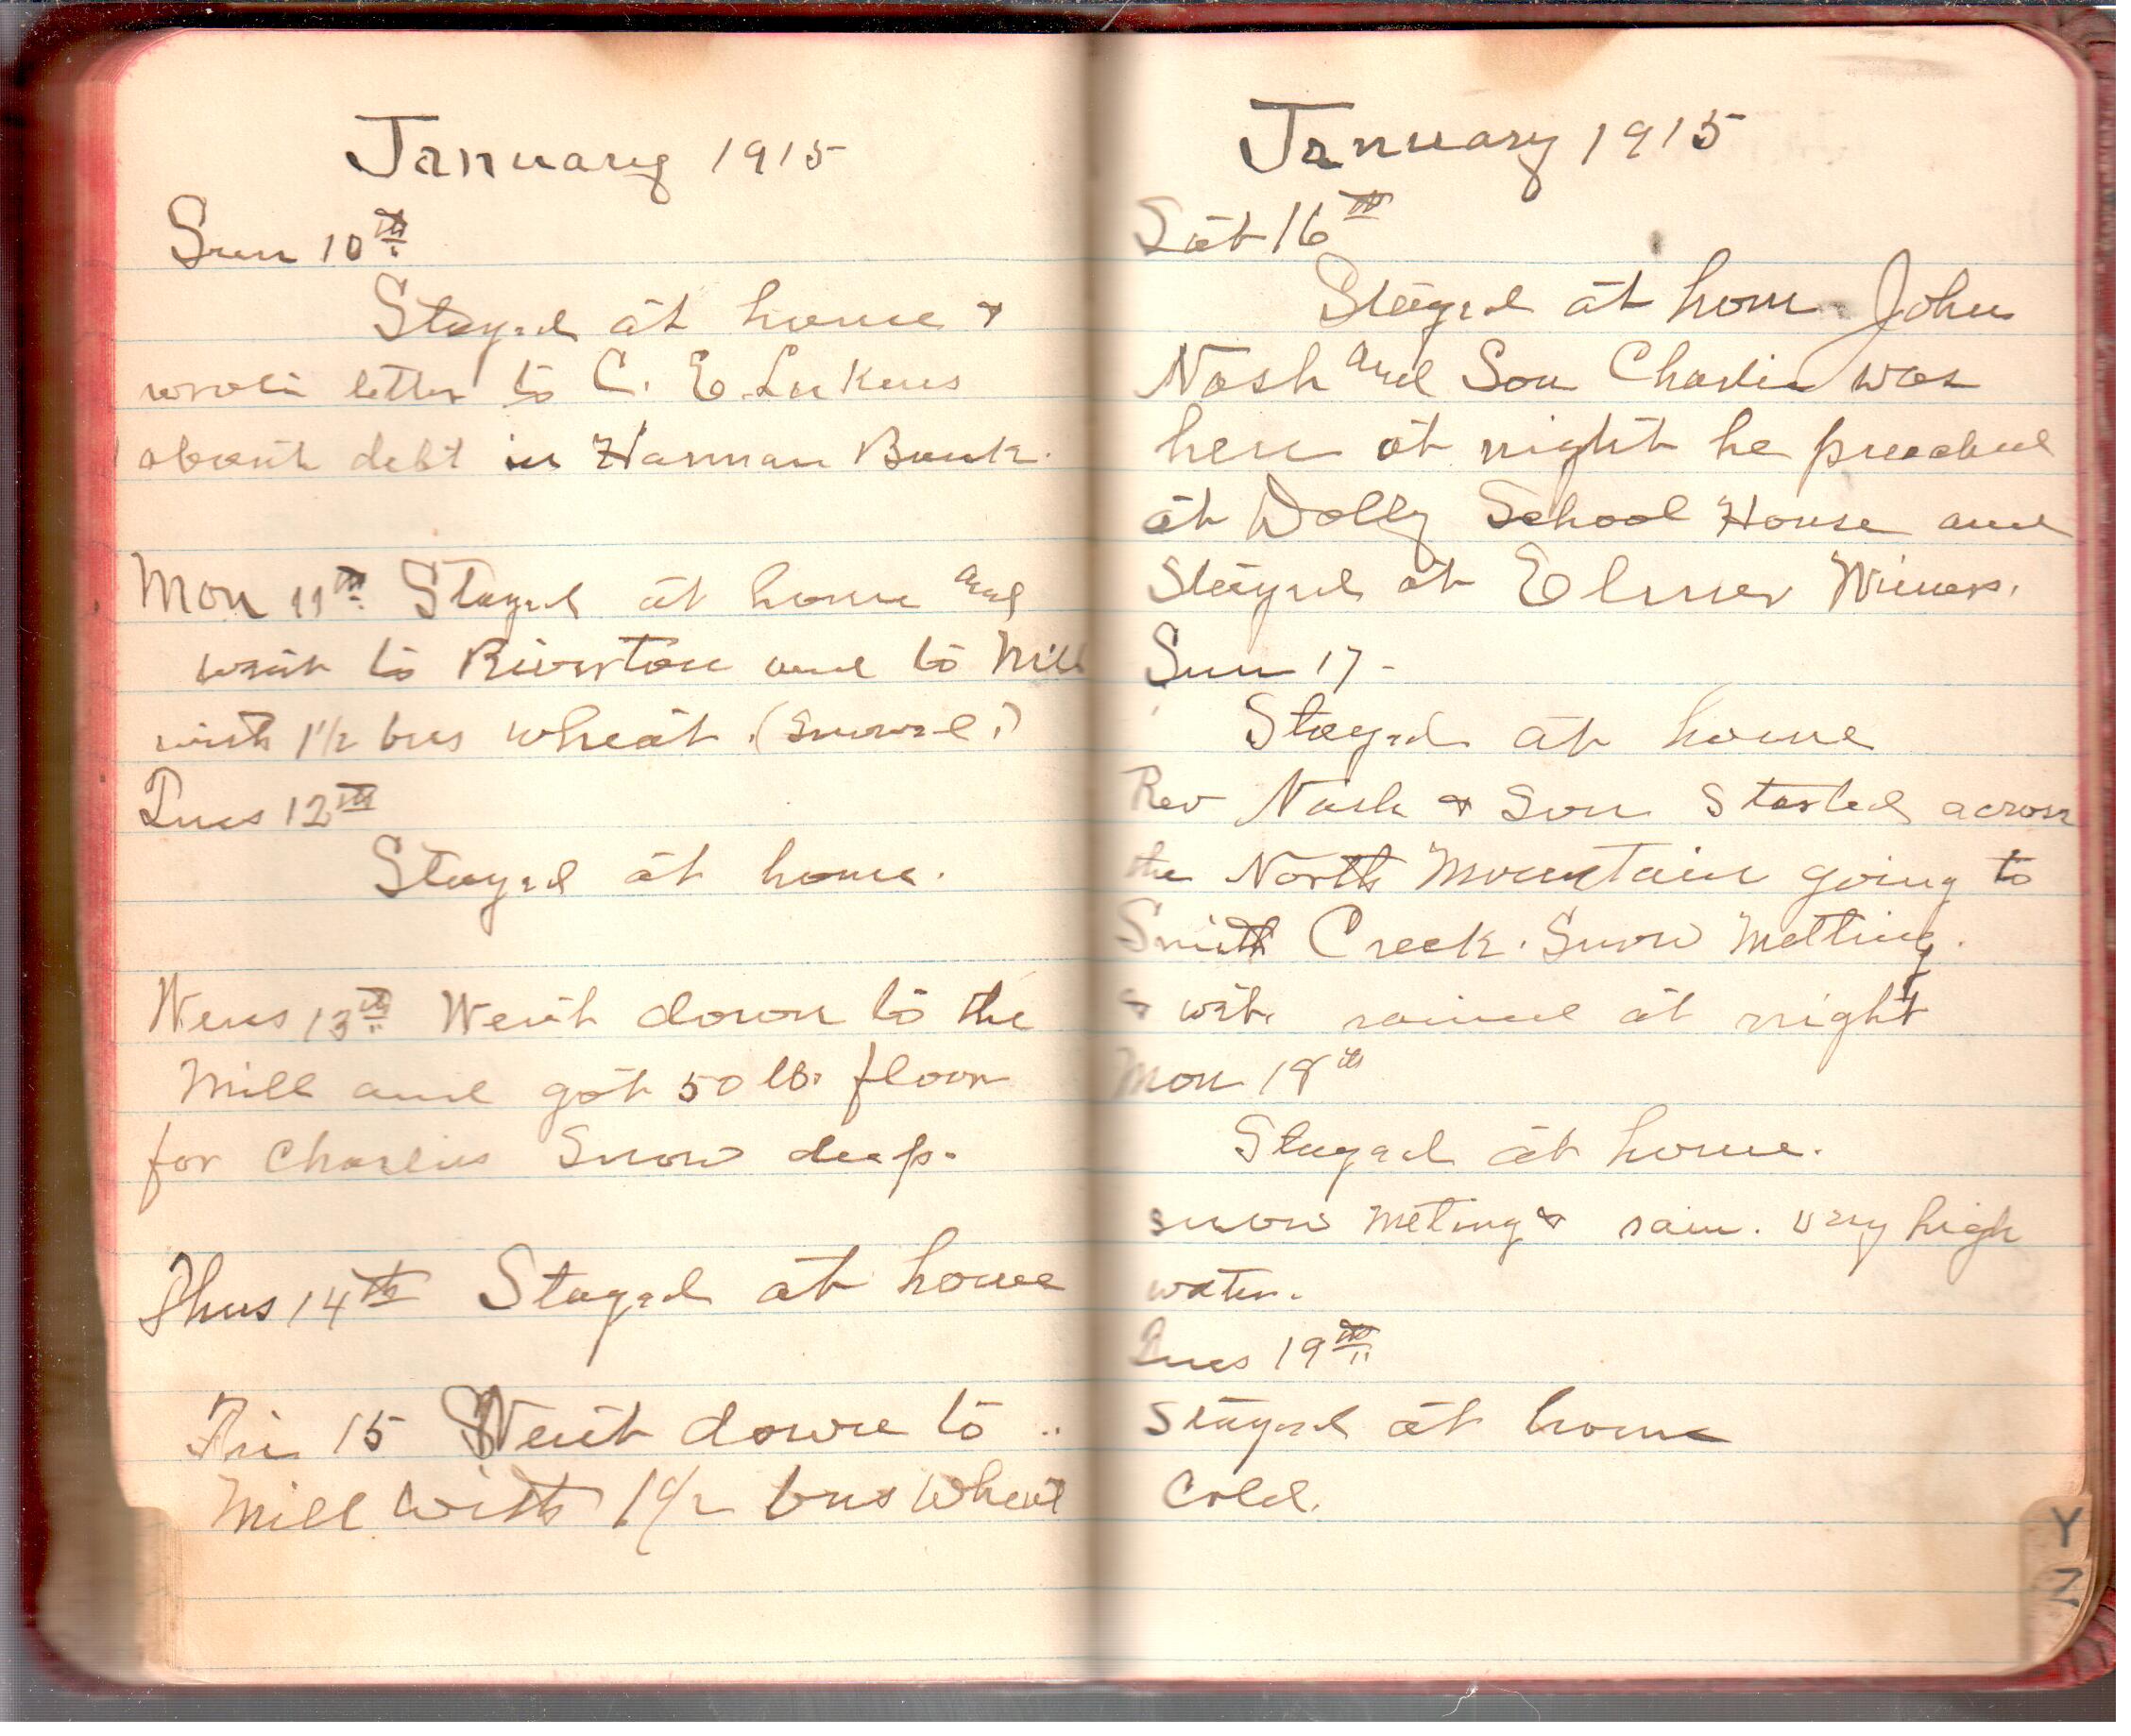 January 1915
Sun 10th
Stayed at home &
wrote letter to C. E. Lukens
about debt in Harman Bank.
Mon 11th Stayed at home and
went to Riverton and to Mill
with 1 1/2 bus wheat. (Snowed.)
Tues 12th
Stayed at home.
Wens 13th Went down to the
Mill and got 50 lb. floor
for Charlies Snow deep.
Thus 14th Stayed at home
Fri 15 Went down to ..
Mill with 1 1/2 bus wheat
January 1915
Sat 16th
Stayed at home John
Nash and Son Charlie was
here at night he preached
at Dolly School House and
Stayed at Elmer
Sun 17-
Stayed at home
Rev Nash & Son Started across
the North Mountain going to
Smith Creek. Snow Melting.
& wet. rained at night
Mon 18th
Stayed at home.
snow meting & rain. very high
water.
Tues 19th
Stayed at home
Cold.
Y
Z